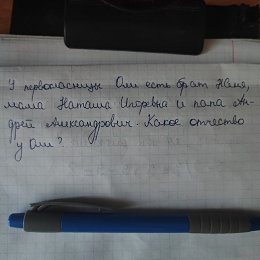 У первоклассницы Оли есть брат Коля,
мама Наташа Игоревна и папа Ан-
дрей Александрович. Какое отчество
у Оли?